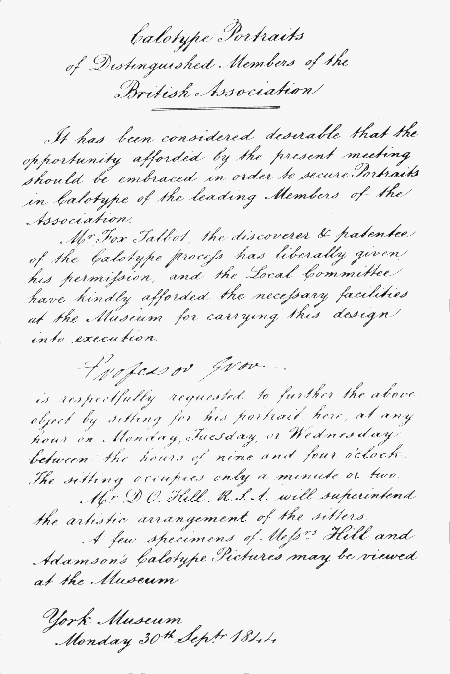 Calotype Portraits
of Distinguished Members of the
British Association
It has been considered desirable that the
opportunity afforded by the present meeting
should be embraced in order to secure Portraits
in Calotype of the leading Members of the
Association.
Mr Fox Talbot, the discoverer & patentee
of the Calotype process has liberally given
his permission, and the Local Committee
have kindly afforded the necessary facilities
at the Museum for carrying this design
into execution.
Professor Grove
is respectfully requested to further the above
object by sitting for his portrait here, at any
hour on Monday, Tuesday, or Wednesday
between the hours of nine and four o'clock.
The sitting occupies only a minute or two.
Mr D. O. Hill. R.S.A. will superintend
the artistic arrangement of the sitters.
A few specimens of Messrs Hill and
Adamson's Calotype Pictures may be viewed
at the Museum
York Museum
Monday 30th Septr 1844